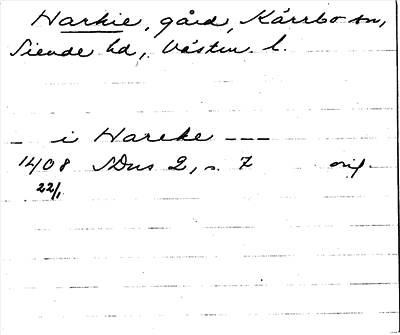 Harkie, gård, Kärrbo sn,
Siende hd, Västm. l.
- i Hareke ---
1408 SDns 2, s. 7 orig.
22/1